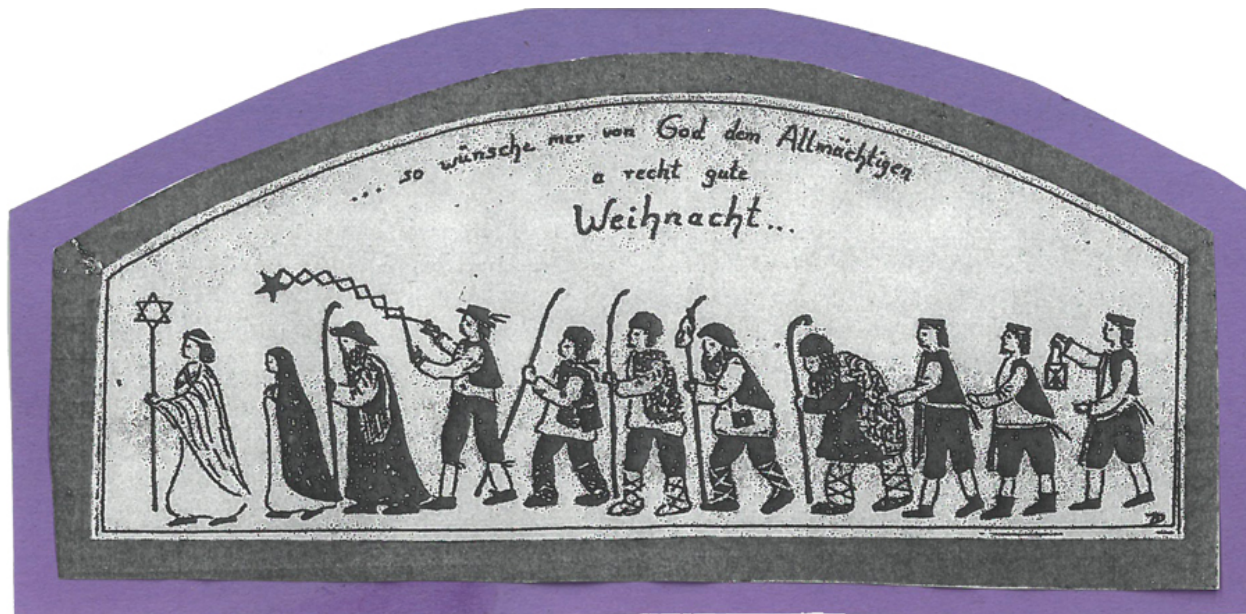 ... so wünsche mer von God dem Allmächtigen
a recht gute
Weihnacht...